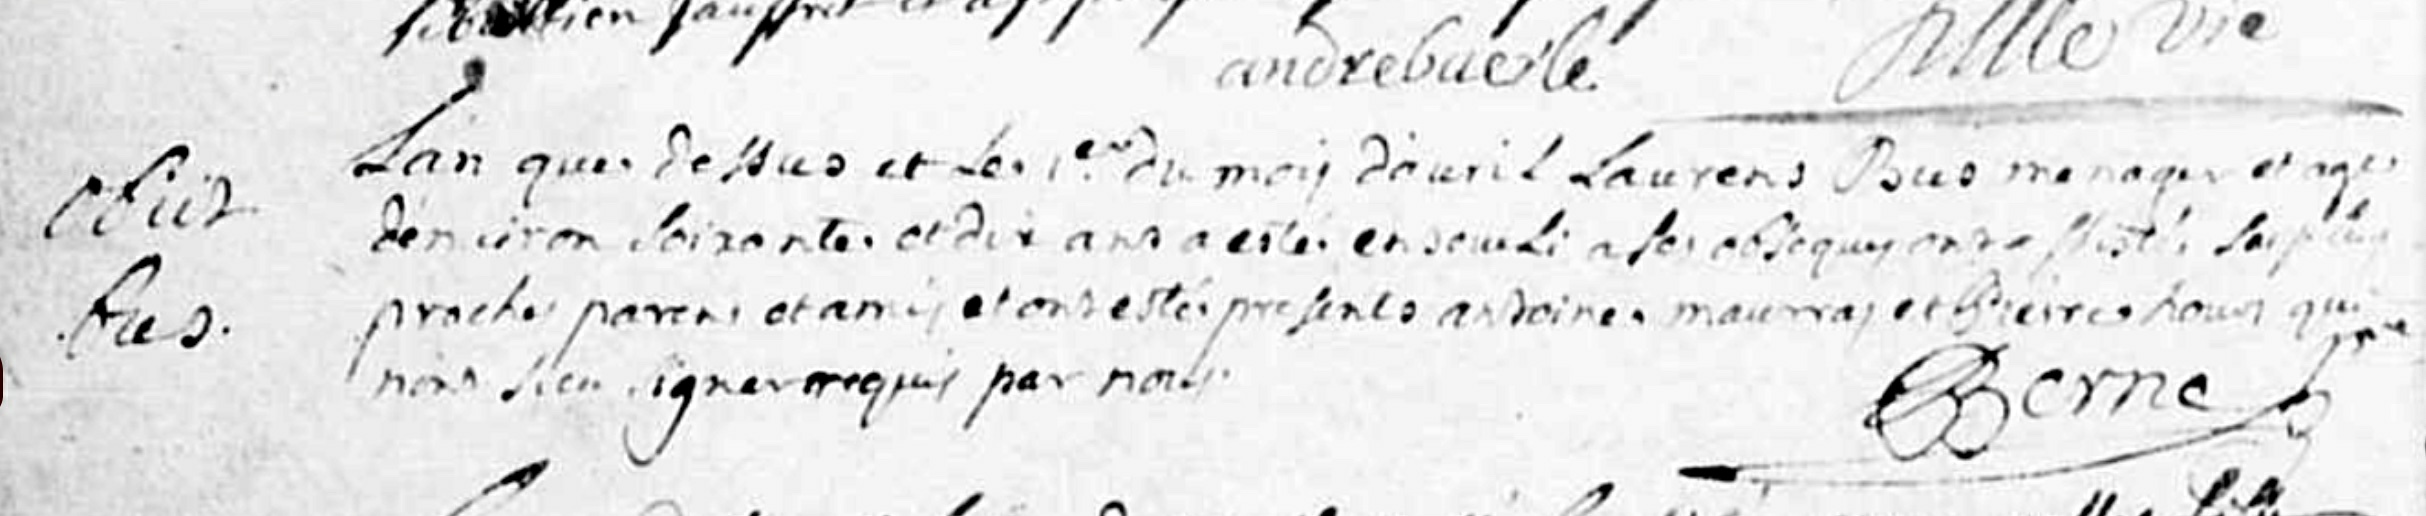 andrebuesle
Lan que dessus et le 1er du mois dauril Laurens Bus menager et agé
obiit
denuiron soixante et dix ans a esté enseueli a ses obseques ont assisté ses plus
bus.
proches parens et amis et ont esté presents antoine maurras et Pierre houn qui
nont sceu signer requis par nous
Berne ptre